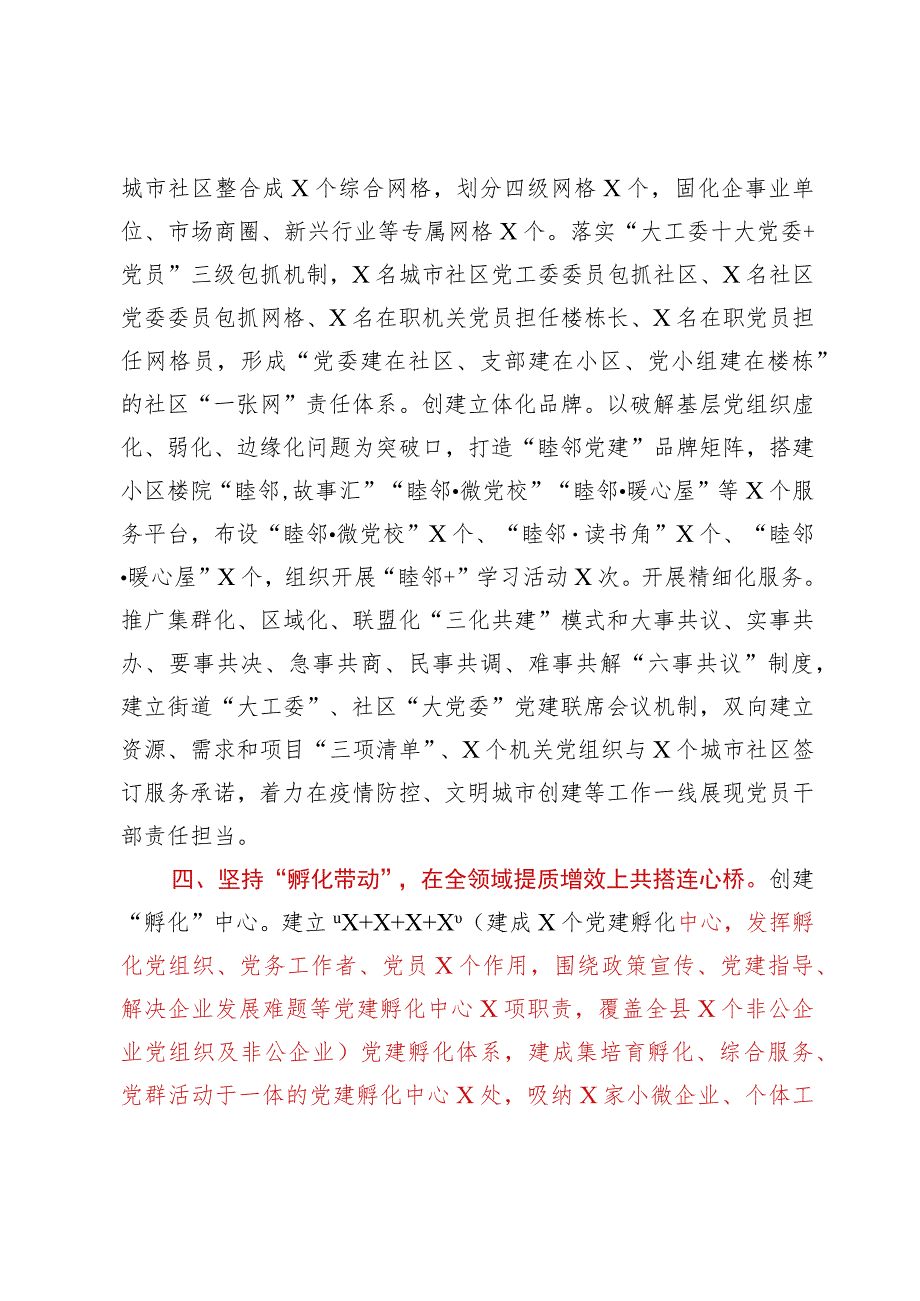 城市社区整合成 X 个综合网格，划分四级网格 X 个，固化企事业单
位、市场商圈、新兴行业等专属网格 X 个。落实“大工委十大党委+
党员”三级包抓机制，X 名城市社区党工委委员包抓社区、X 名社区
党委委员包抓网格、X 名在职机关党员担任楼栋长、X 名在职党员担
任网格员，形成“党委建在社区、支部建在小区、党小组建在楼栋”
的社区“一张网”责任体系。创建立体化品牌。以破解基层党组织虚
化、弱化、边缘化问题为突破口，打造“睦邻党建”品牌矩阵，搭建
小区楼院“睦邻,故事汇”“睦邻•微党校”“睦邻•暖心屋”等 X 个服
务平台，布设“睦邻•微党校”X 个、“睦邻·读书角”X 个、“睦邻
•暖心屋”X 个，组织开展“睦邻+”学习活动 X 次。开展精细化服务。
推广集群化、区域化、联盟化“三化共建”模式和大事共议、实事共
办、要事共决、急事共商、民事共调、难事共解“六事共议”制度，
建立街道“大工委”、社区“大党委”党建联席会议机制，双向建立
资源、需求和项目“三项清单”、X 个机关党组织与 X 个城市社区签
订服务承诺，着力在疫情防控、文明城市创建等工作一线展现党员干
部责任担当。
四、坚持“孵化带动”，在全领域提质增效上共搭连心桥。创建
“孵化”中心。建立 ᵘX+X+X+Xᶹ（建成 X 个党建孵化中心，发挥孵
化党组织、党务工作者、党员 X 个作用，围绕政策宣传、党建指导、
解决企业发展难题等党建孵化中心 X 项职责，覆盖全县 X 个非公企
业党组织及非公企业）党建孵化体系，建成集培育孵化、综合服务、
党群活动于一体的党建孵化中心 X 处，吸纳 X 家小微企业、个体工